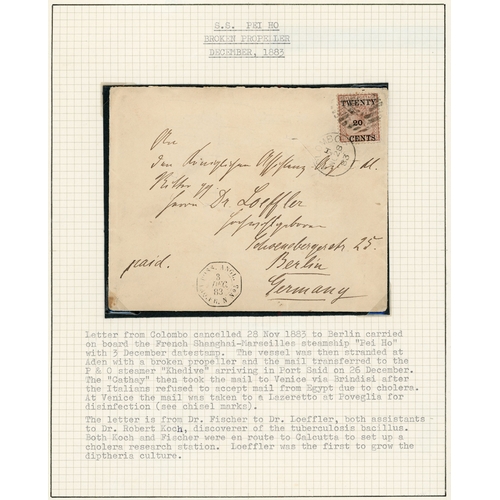 S.S. PEI HO
BROKEN PROPELLER
DECEMBER, 1883
TWENTY
20
CENTS
An
den Königlichen
Ritter pp
Herrn Dr. Loeffler
Hochwohlgeboren
Schoenebergerstr 25.
paid.
Berlin
Germany
3
83
Letter from Colombo cancelled 28 Nov 1883 to Berlin carried
on board the French Shanghai-Marseilles steamship "Pei Ho"
with 3 December datestamp. The vessel was then stranded at
Aden with a broken propeller and the mail transferred to the
P & O steamer "Khedive" arriving in Port Said on 26 December.
The "Cathay" then took the mail to Venice via Brindisi after
the Italians refused to accept mail from Egypt due to cholera.
At Venice the mail was taken to a Lazeretto at Poveglia for
disinfection (see chisel marks).
The letter is from Dr. Fischer to Dr. Loeffler, both assistants
to Dr. Robert Koch, discoverer of the tuberculosis bacillus.
Both Koch and Fischer were en route to Calcutta to set up a
cholera research station. Loeffler was the first to grow the
diptheria culture.